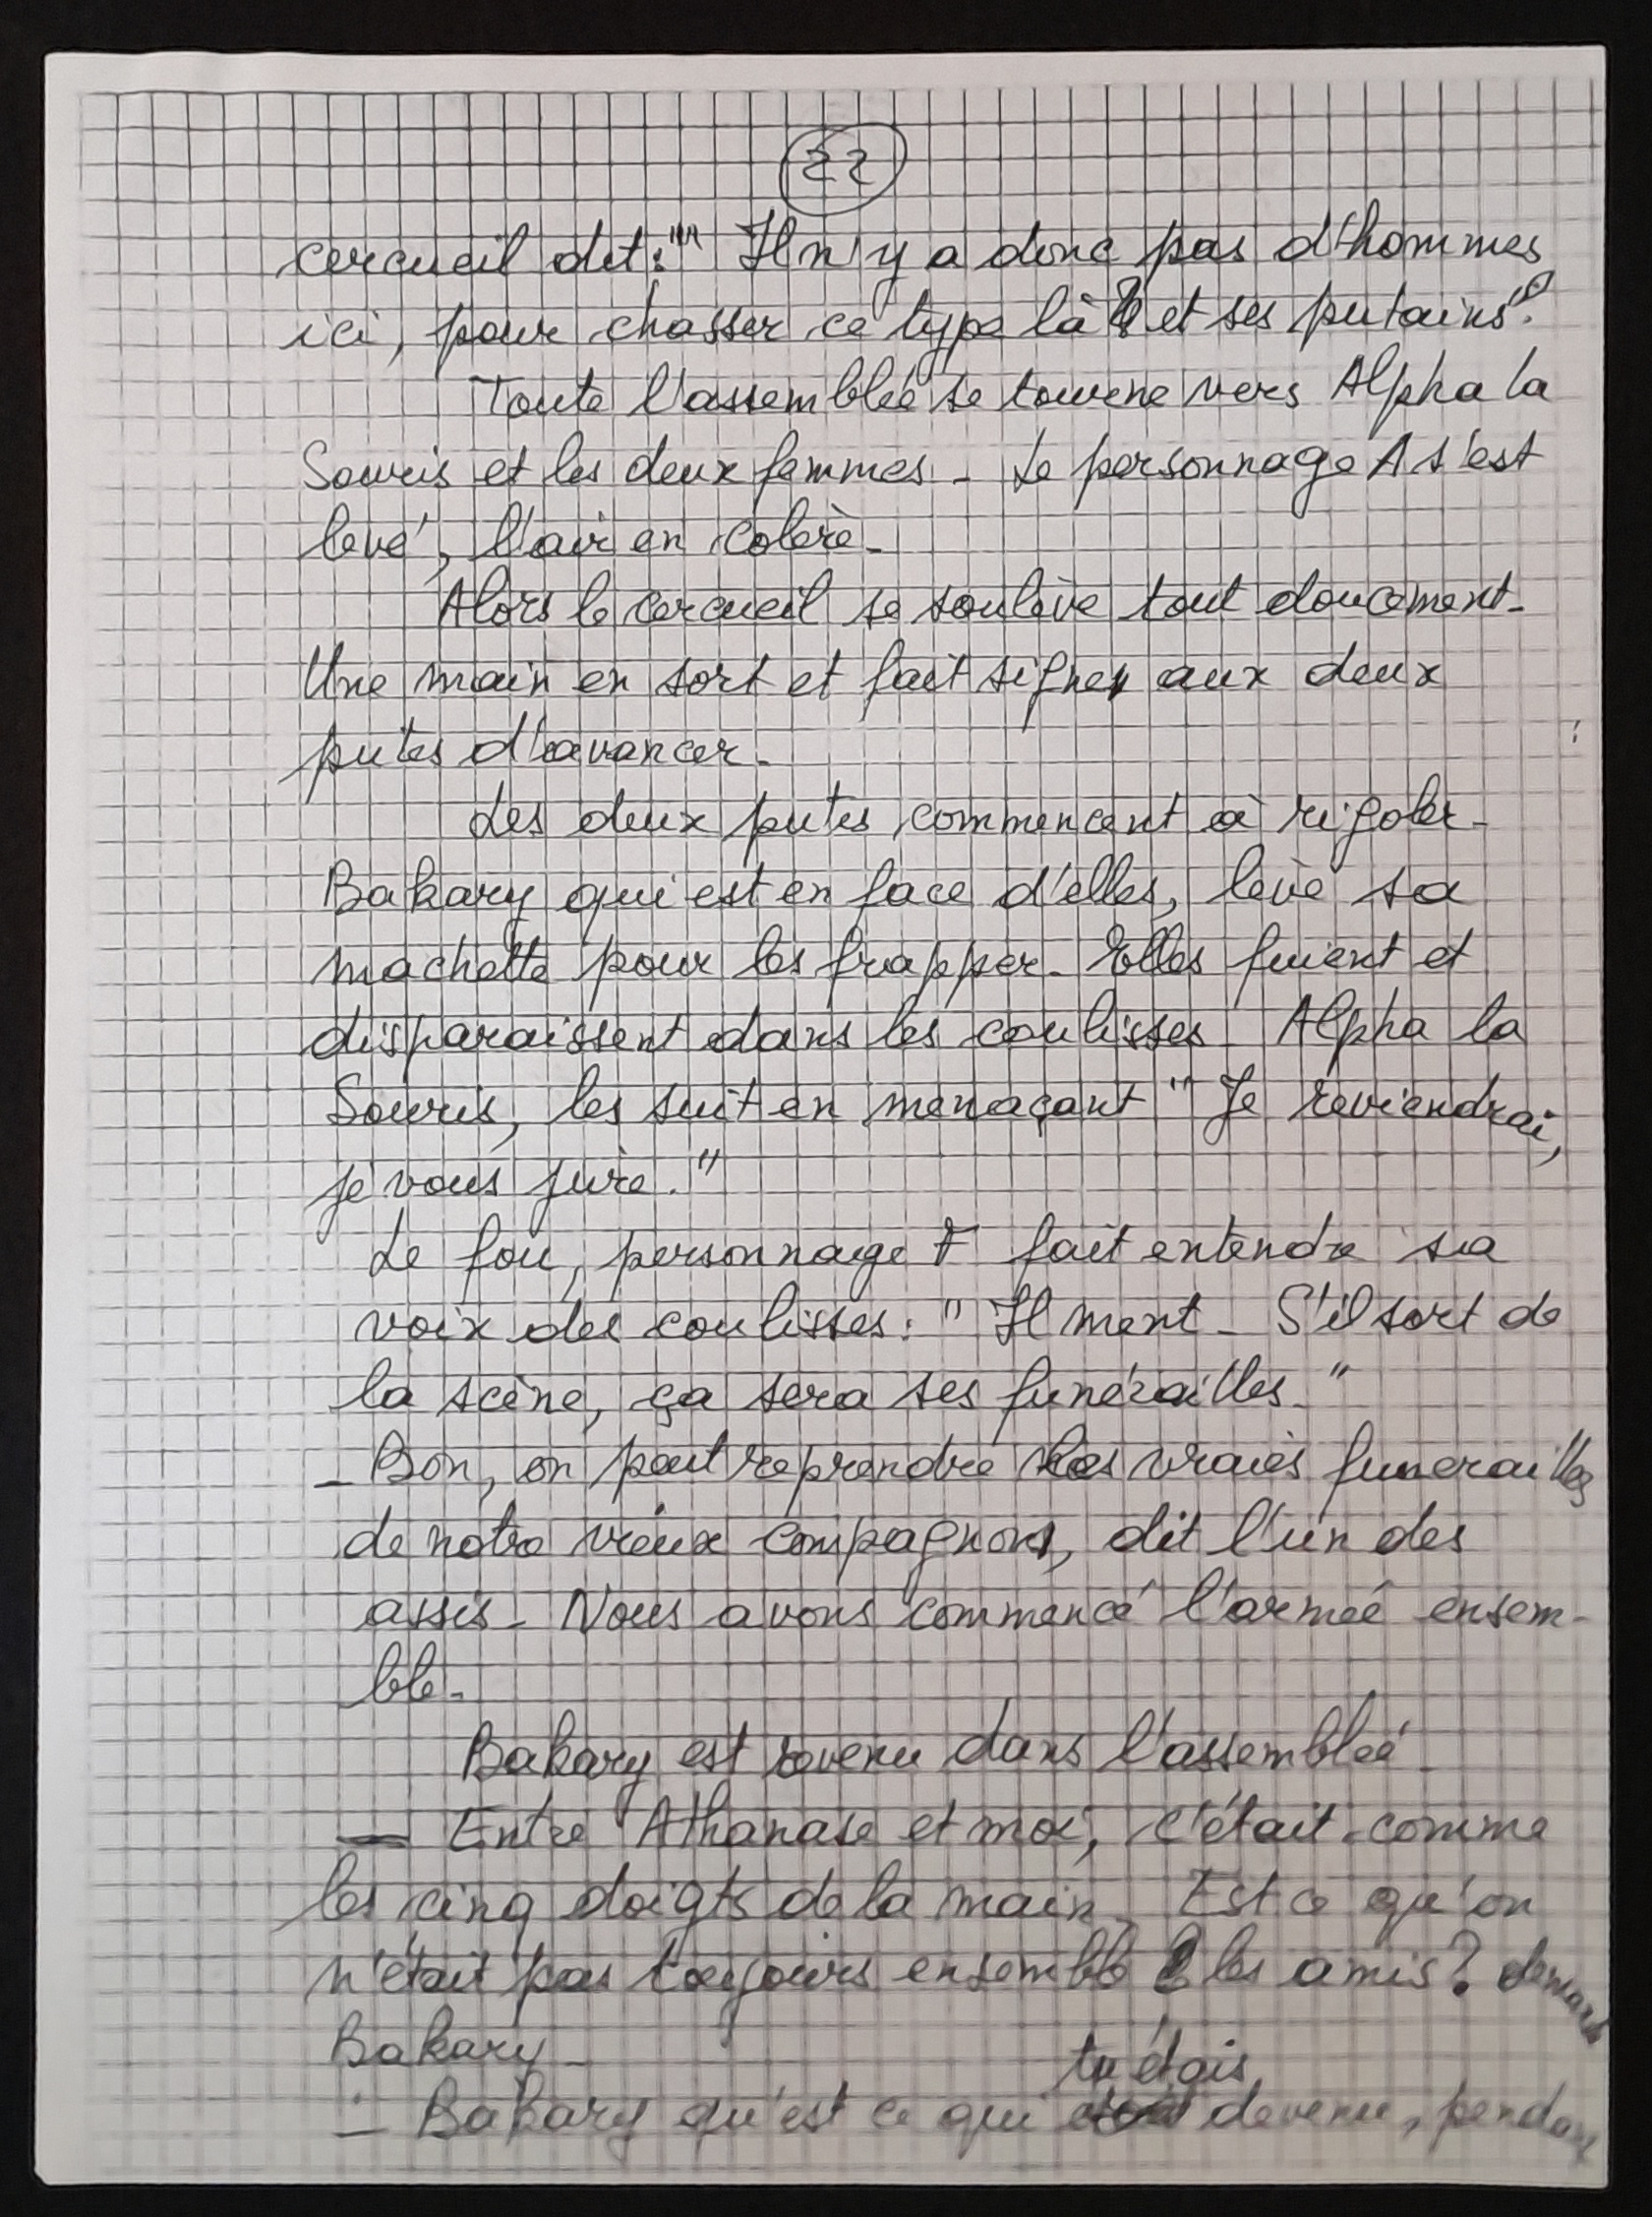 22
cercueil dit : "" Il n'y a donc pas d'hommes
ici, pour chasser ce type là et ses putains"?
Toute l'assemblée se tourne vers Alpha la
Souris et les deux femmes - Le personnage A s'est
levé, l'air en colère -
Alors le cercueil se soulève tout doucement -
Une main en sort et fait signe aux deux
putes d'avancer -
Les deux putes commencent à rigoler -
Bakary qui est en face d'elles, lève sa
machette pour les frapper - Elles fuient et
disparaissent dans les coulisses - Alpha la
Souris, les suit en menaçant " Je reviendrai,
je vous jure. "
Le fou, personnage F fait entendre sa
voix des coulisses : " Il ment - S'il sort de
la scène, ça sera ses funérailles - "
- Bon, on peut reprendre les vraies funerailles
de notre vieux compagnon, dit l'un des
assis - Nous avons commencé l'armée ensem-
ble -
Bakary est revenu dans l'assemblée -
- Entre Athanase et moi, c'était comme
les cinq doigts de la main - Est ce qu'on
n'était pas toujours ensemble les amis ?
Bakary -
tu étais
- Bakary qu'est ce qui devenu, pendant